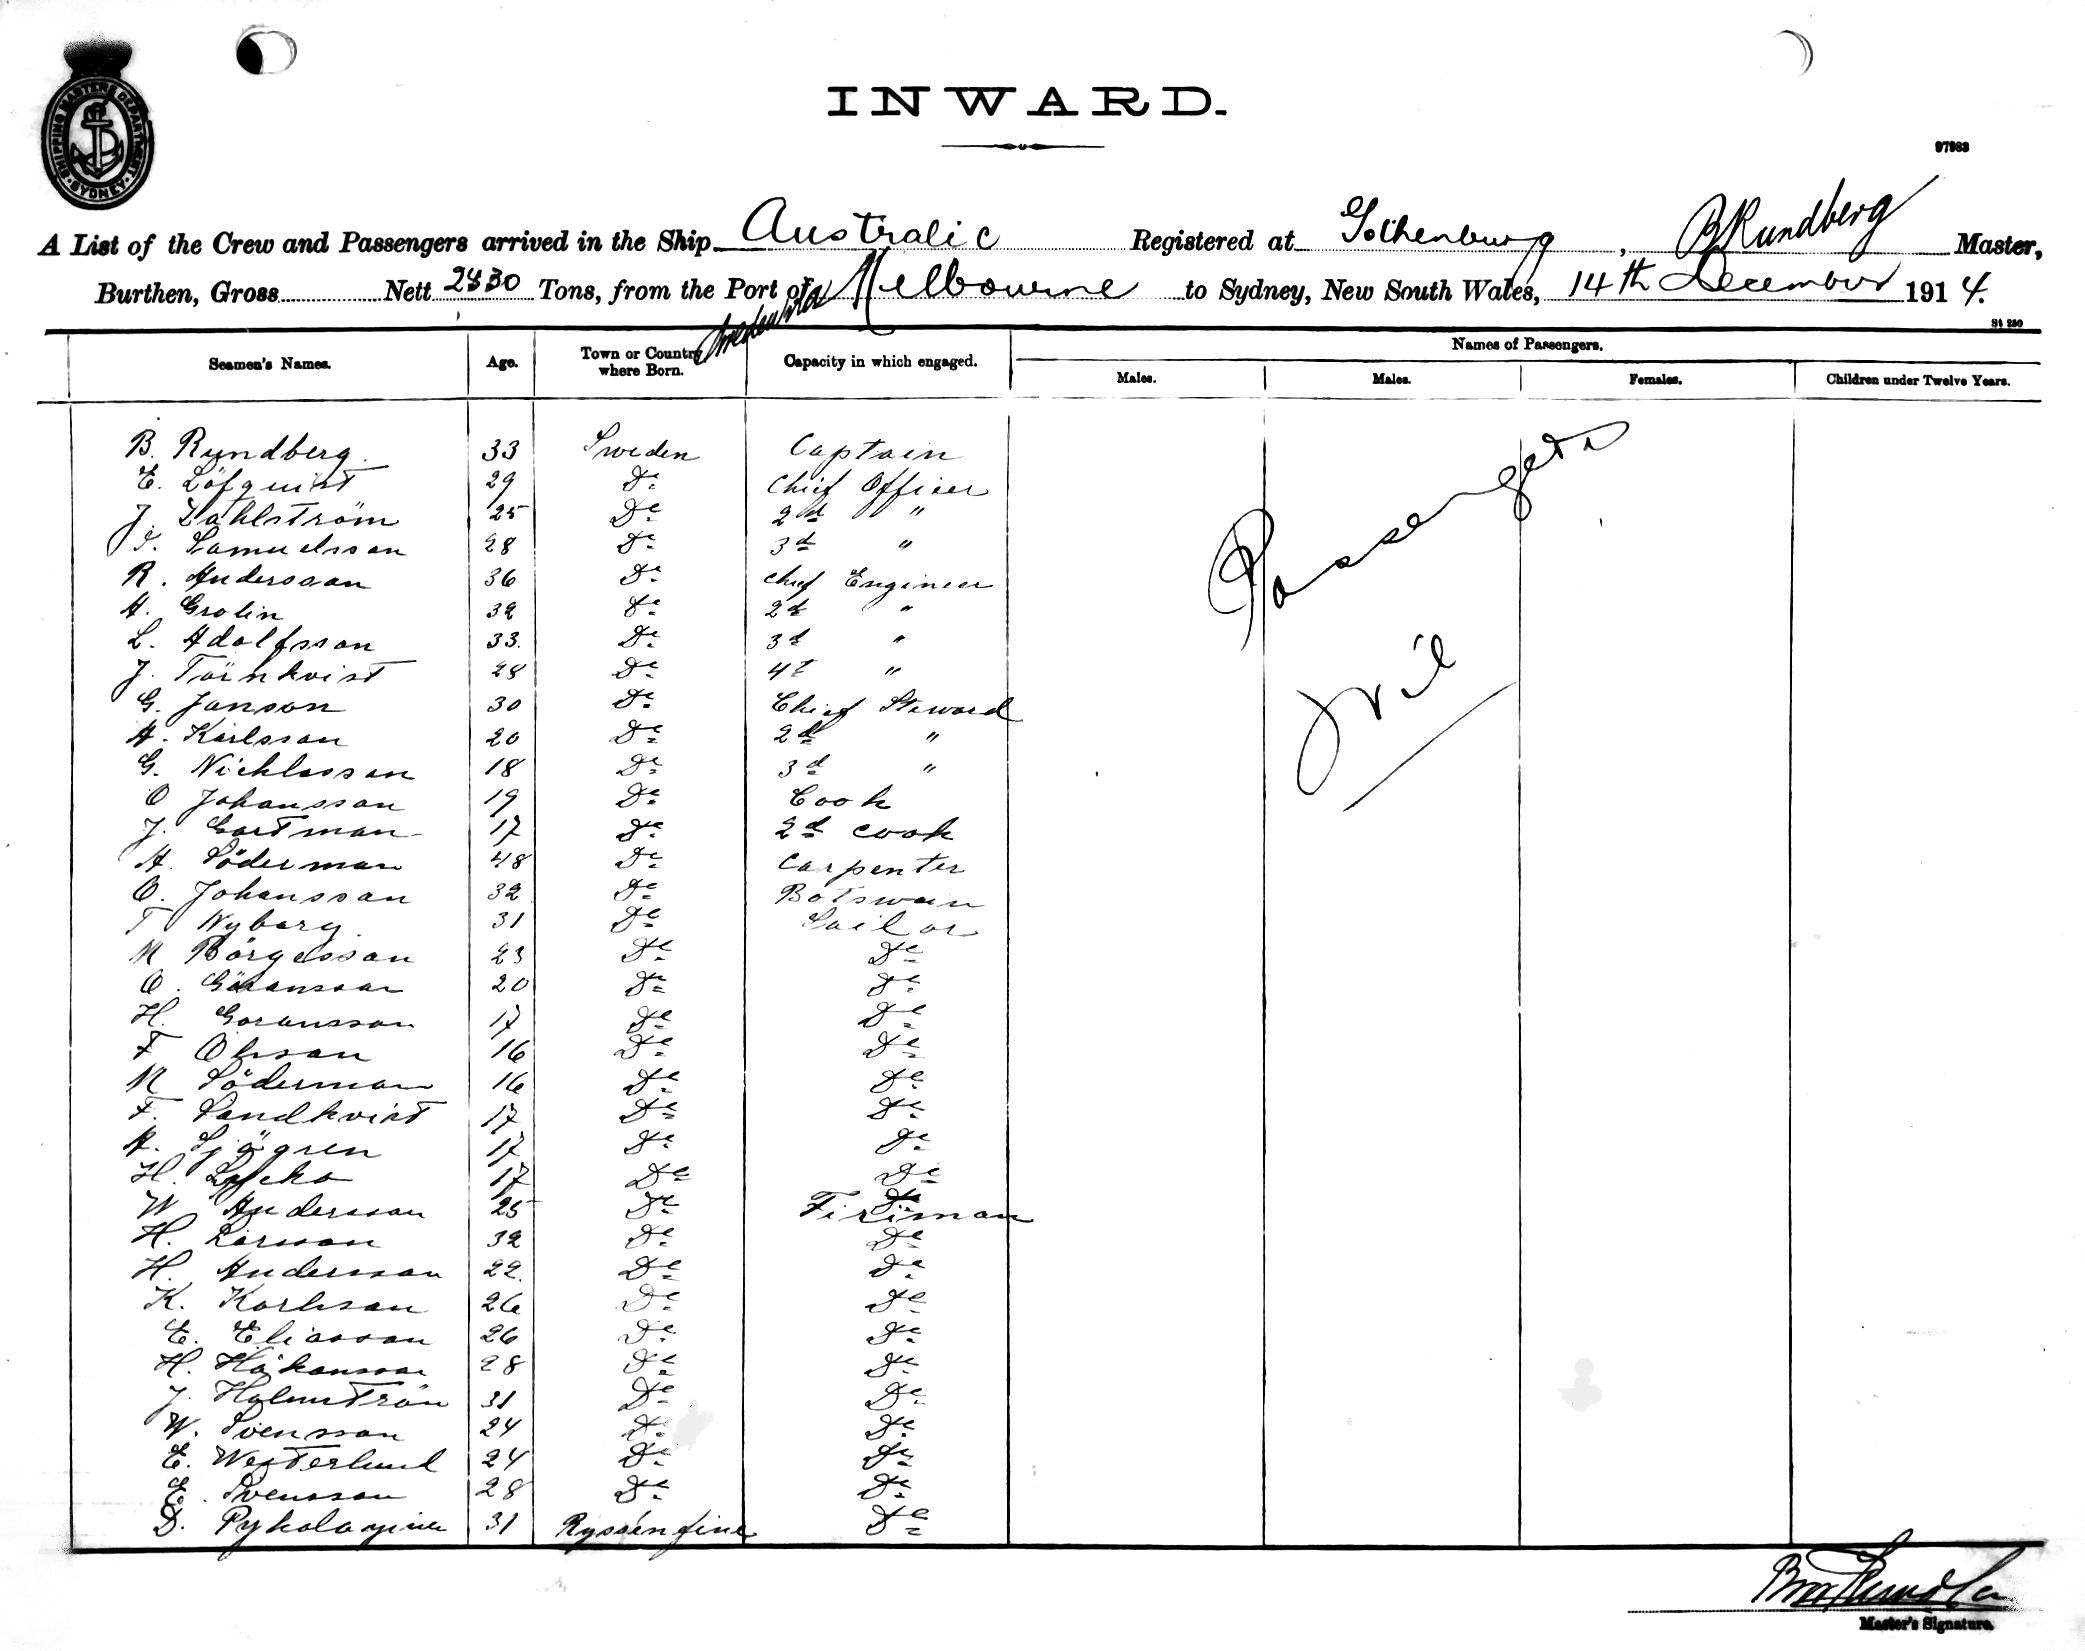 SHIPPING MASTERS DEPARTMENT
SYDNEY
INWARD.
97983
A List of the Crew and Passengers arrived in the Ship Australic Registered at Gothenburg, B Rundberg Master,
Burthen, Gross Nett 2830 Tons, from the Port of Melbourne to Sydney, New South Wales, 14th December 1914.
St 250
Seamen's Names. Age. Town or Country where Born. Capacity in which engaged. Names of Passengers.
Males. Males. Females. Children under Twelve Years.
Passengers
Nil
B. Rundberg. 33 Sweden Captain
E. Löfquist 29 Do Chief Officer
J. Dahlström 25 Do 2d "
Samuelsson 28 Do 3d "
R. Andersson 36 Do Chief Engineer
A. Grolin 32 Do 2d "
L. Adolfsson 33. Do 3d "
J. Törnkvist 28 Do 4t "
G. Janson 30 Do Chief Steward
A. Karlsson 20 Do 2d "
G. Nicklasson 18 Do 3d "
O Johansson 19 Do Cook
J. Gartman 17 Do 2d cook
A. Söderman 48 Do Carpenter
O. Johansson 32 Do Botswain
T Nyberg. 31 Do Sailor
N Börgesson 23 Do Do
O. Göransson 20 Do Do
H. Goransson 17 Do Do
F Olsson 16 Do Do
N Söderman 16 Do Do
F. Sandkvist 17 Do Do
A. Sjögren 17 Do Do
H. 17 Do Do
W Andersson 25 Do Fireman
H. Larsson 32 Do Do
H. Andersson 22. Do Do
K. Karlsson 26 Do Do
E. Eliasson 26 Do Do
H. Håkansson 28 Do Do
J. Holmström 31 Do Do
W. Svensson 24 Do Do
E. Westerlund 24 Do Do
E. Svensson 28 Do Do
D. 31 Do
Master's Signature.